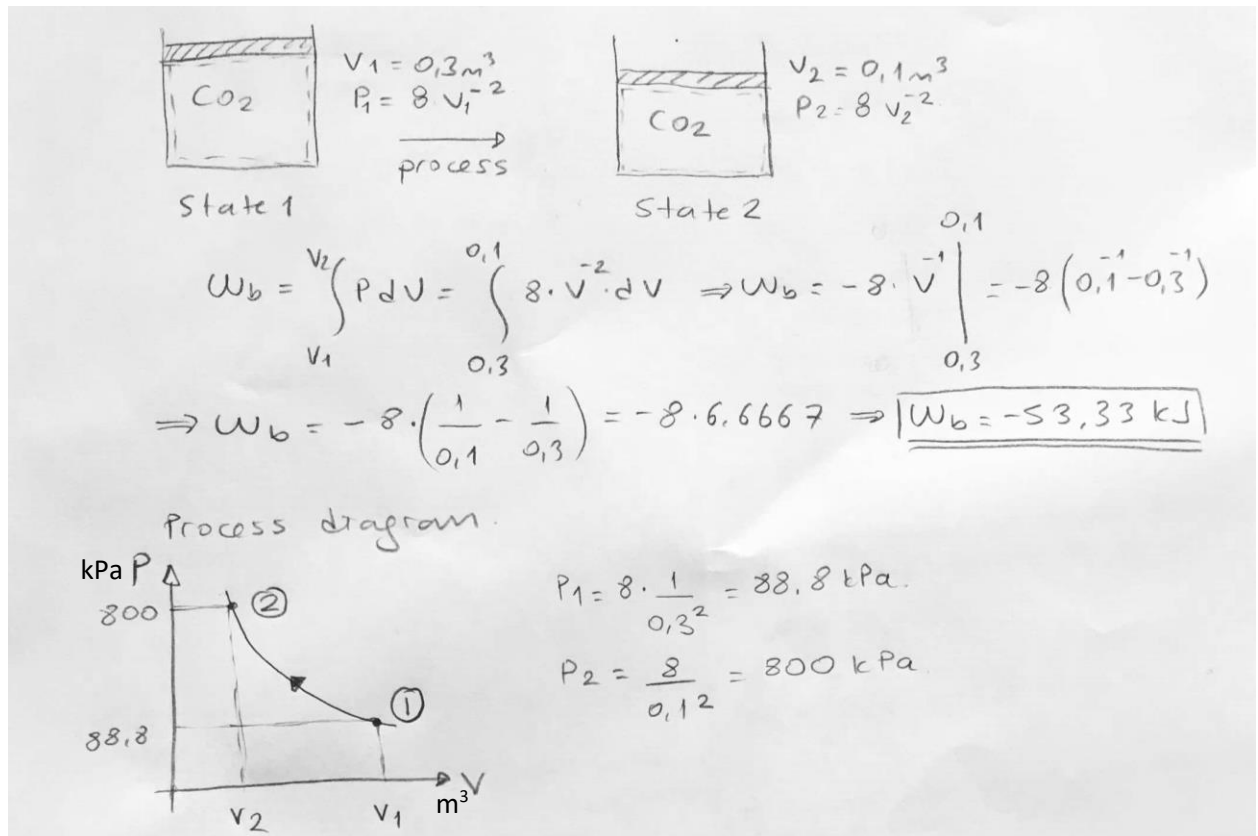 CO2
V1 = 0,3m³
P1 = 8 V1⁻²
process
State 1
CO2
V2 = 0,1m³
P2 = 8 V2⁻²
State 2
Wb = ∫V1^V2 PdV = ∫0,3^0,1 8·V⁻²·dV ⇒ Wb = -8·V⁻¹ |0,3^0,1 = -8(0,1⁻¹-0,3⁻¹)
⇒ Wb = -8·(1/0,1 - 1/0,3) = -8·6,6667 ⇒ Wb = -53,33 kJ
Process diagram.
kPa P
800
②
①
88,8
V2
V1
m³
V
P1 = 8·1/0,3² = 88,8 kPa.
P2 = 8/0,1² = 800 kPa